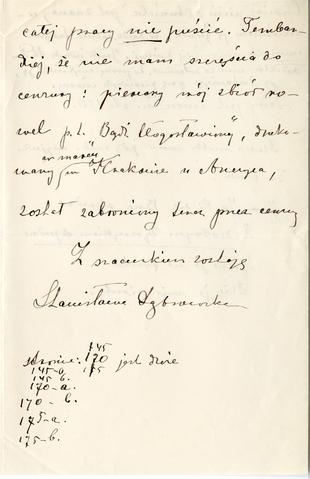 całej pracy nie puścić. Tembar-
dziej, że nie mam szczęścia do
cenzury: pierwszy mój zbiór no-
wel p.t. Bądź błogosławiony", druko-
w marcu
wany w Krakowie u Anczyca,
został zabroniony teraz przez cenzurę
Z szacunkiem zostaję
Stanisława
145
stronic: 170 jest dwie
145-a. 175
145-b.
170-a.
170-b.
175-a.
175-b.